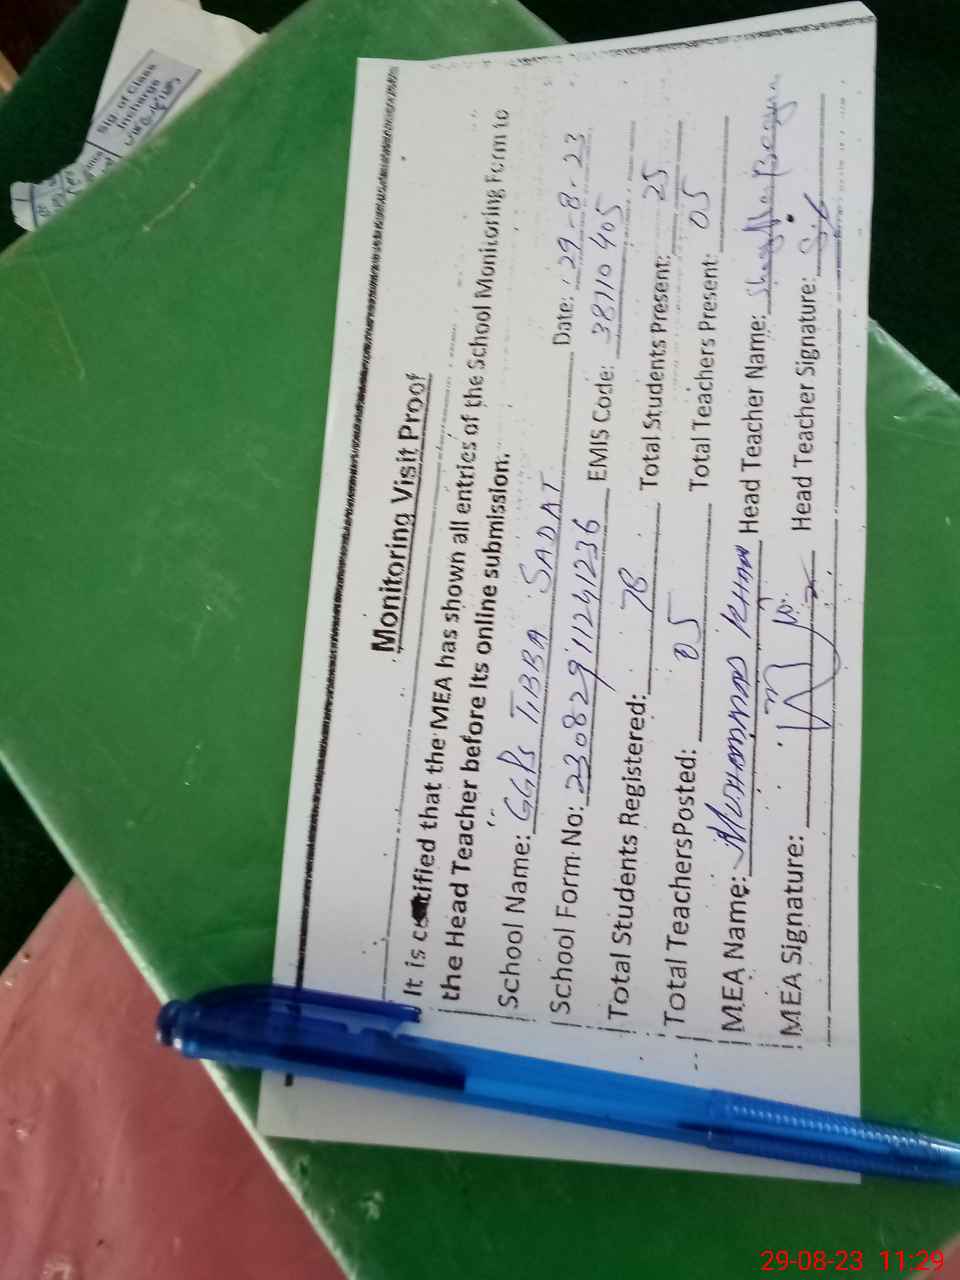 Monitoring Visit Proof
It is certified that the MEA has shown all entries of the School Monitoring Form to
the Head Teacher before its online submission.
School Name: GGPS TIBBA SADAT Date: 29-8-23
School Form No: 23082911241236 EMIS Code: 38110405
Total Students Registered: 78 Total Students Present: 25
Total Teachers Posted: 05 Total Teachers Present: 05
MEA Name: MUHAMMAD KHAN Head Teacher Name: Begum
MEA Signature: Head Teacher Signature:
Sig. of Class
Incharge
29-08-23 11:29